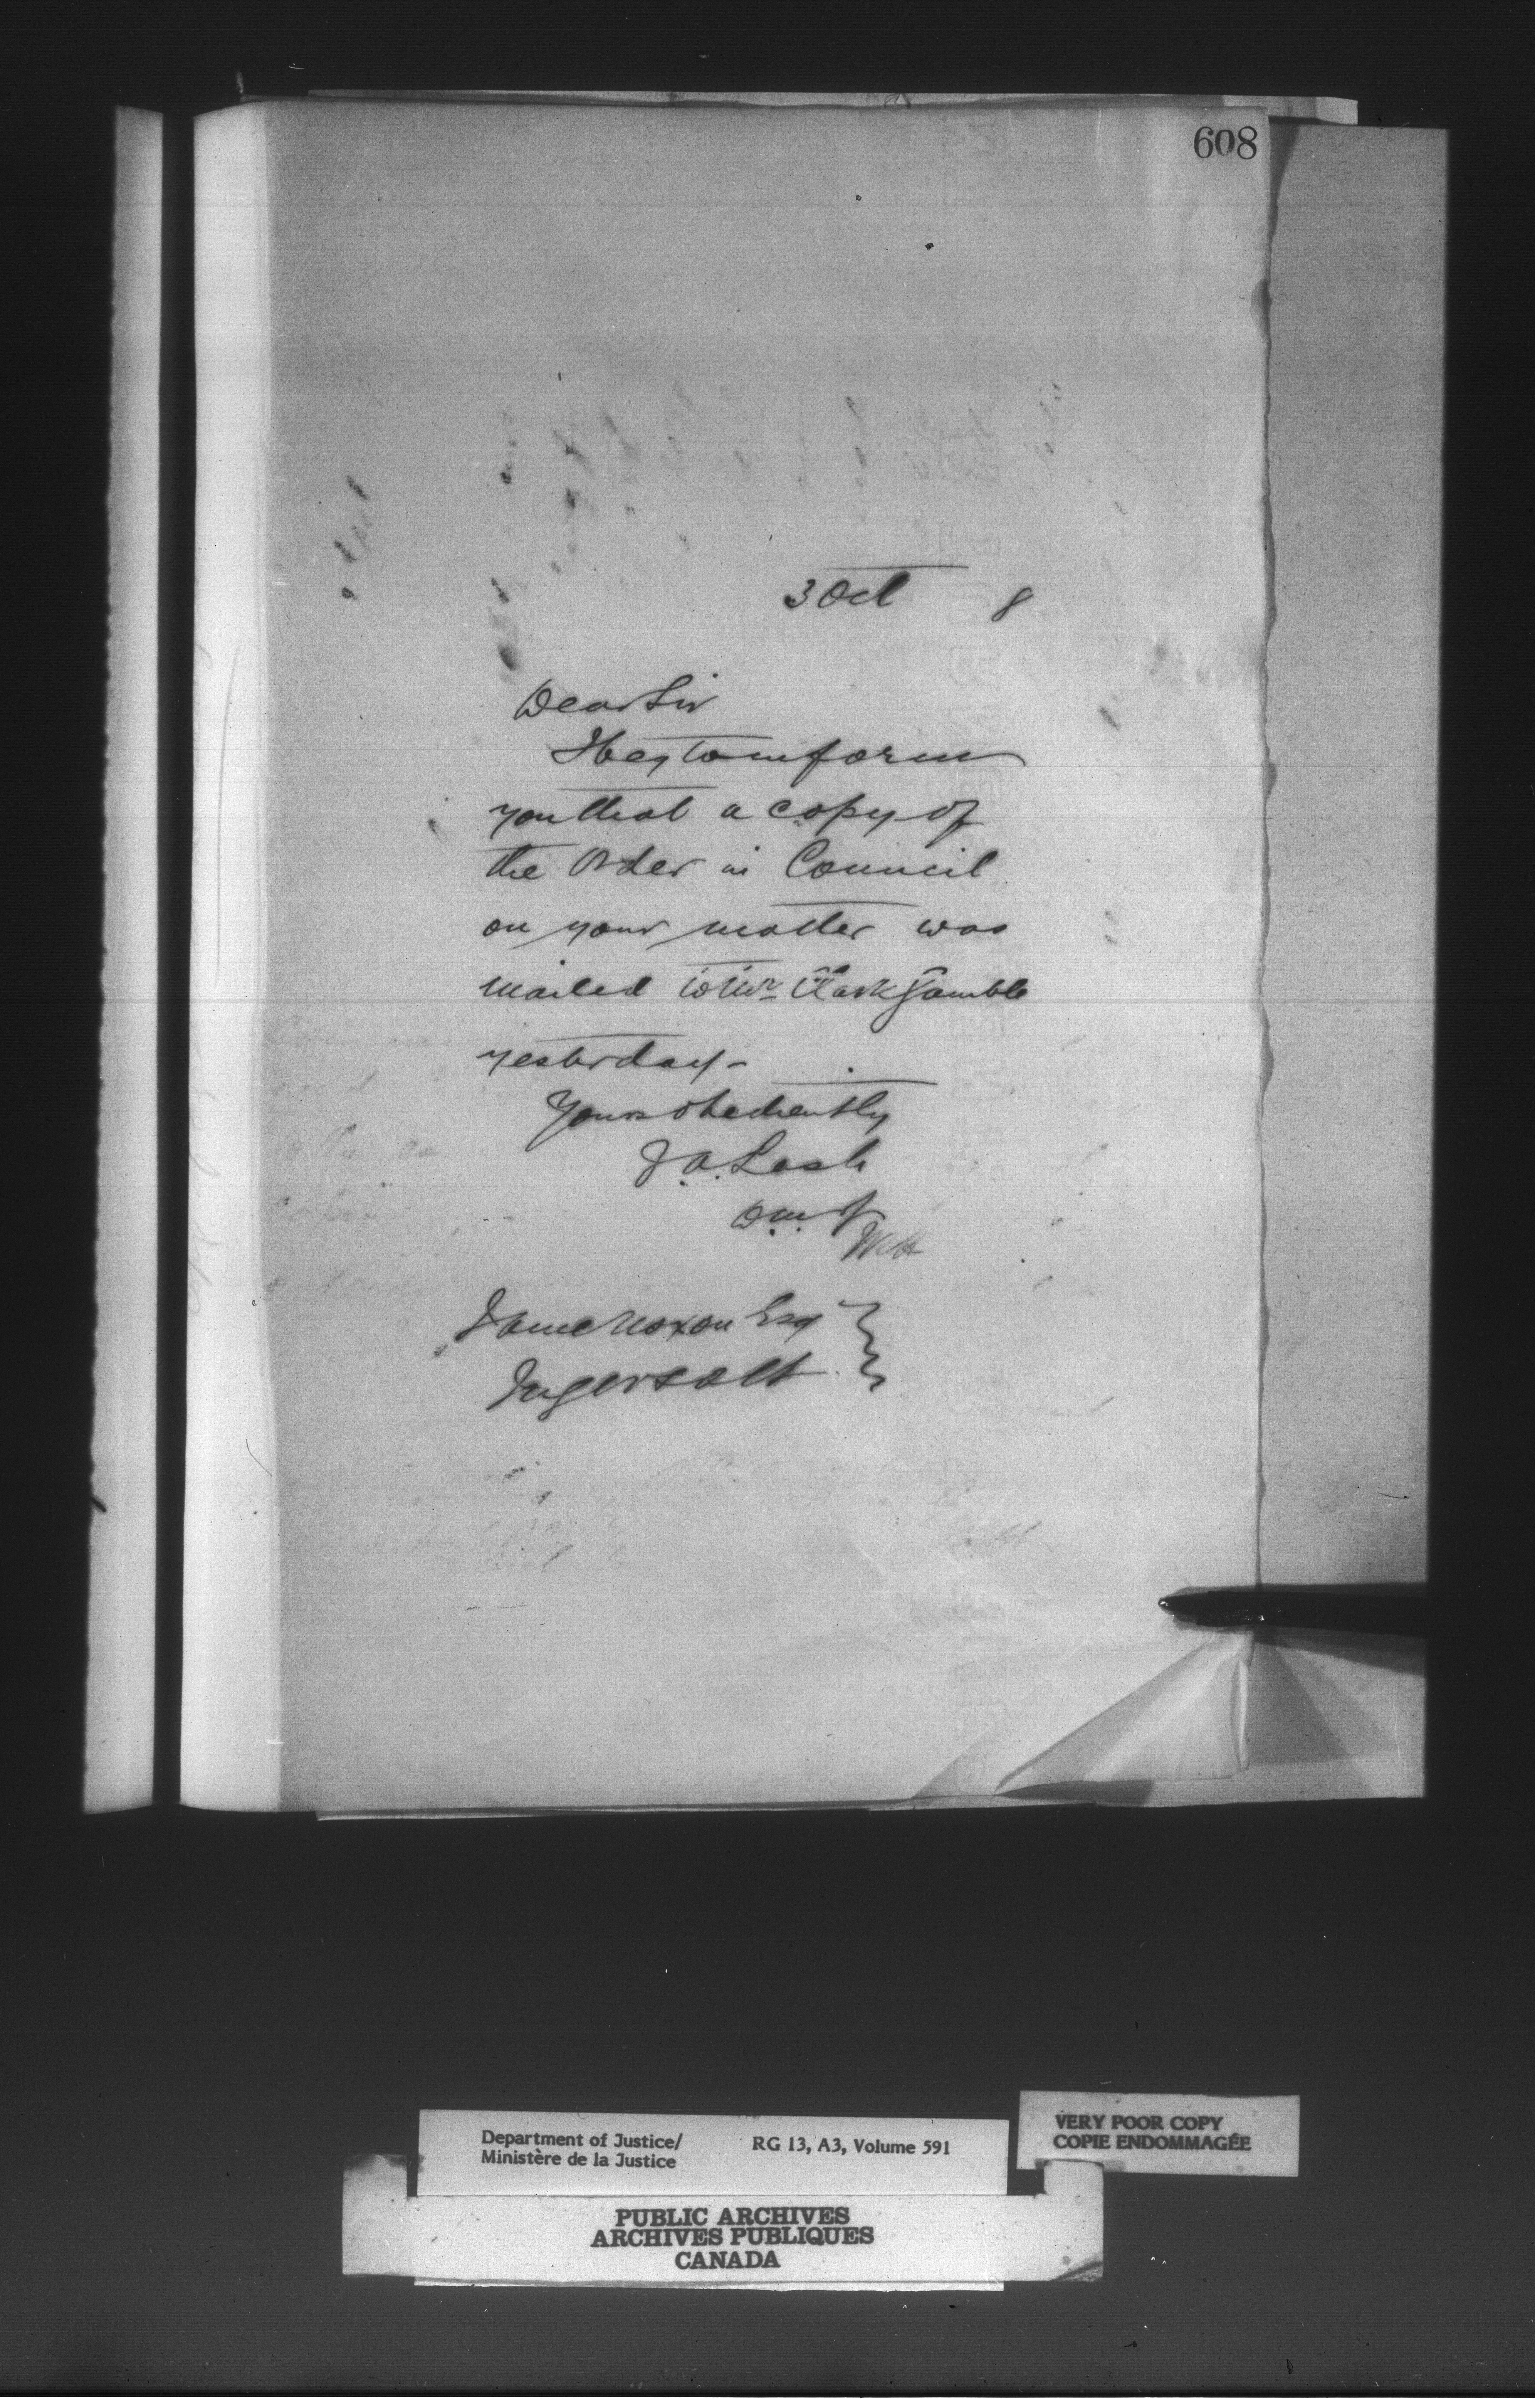 608
3 Oct 8
Dear Sir
I beg to inform
you that a copy of
the Order in Council
on your matter was
mailed to Mr Clark Gamble
yesterday-
Yours obediently
Z A Lash
D.M. of J
James Noxon Esq
Ingersoll
Department of Justice/ RG 13, A3, Volume 591
Ministère de la Justice
VERY POOR COPY
COPIE ENDOMMAGÉE
PUBLIC ARCHIVES
ARCHIVES PUBLIQUES
CANADA